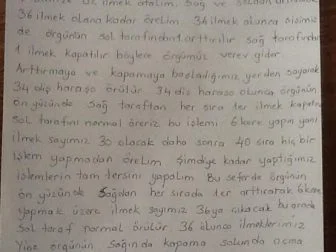 ilmek atalım. Sağ ve soldan
36 ilmek olana kadar örelim. 34 ilmek olunca şişimiz
de örgünün sol tarafından 1 arttırılır sağ tarafından
1 ilmek kapatılır böylece örgümüz verev gider.
Arttırmaya ve kapamaya başladığımız yerden sayarak
34 diş haraşo örülür. 34 diş haraşo olunca örgünün
ön yüzünde sağ taraftan her sıra 1er ilmek kapatılır
sol tarafını normal öreriz bu işlemi 6 kere yapın yani
ilmek sayımız 30 olacak daha sonra 40 sıra hiç bir
işlem yapmadan örelim şimdiye kadar yaptığımız
işlemlerin tam tersini yapalım Bu seferde örgünün
ön yüzünde sağdan her sırada 1er arttırarak 6 kere
yapmak üzere ilmek sayımız 36ya çıkacak bu arada
sol taraf normal örülür. 36 olunca ilmeklerimiz
yine örgünün sağında kapama solunda açma